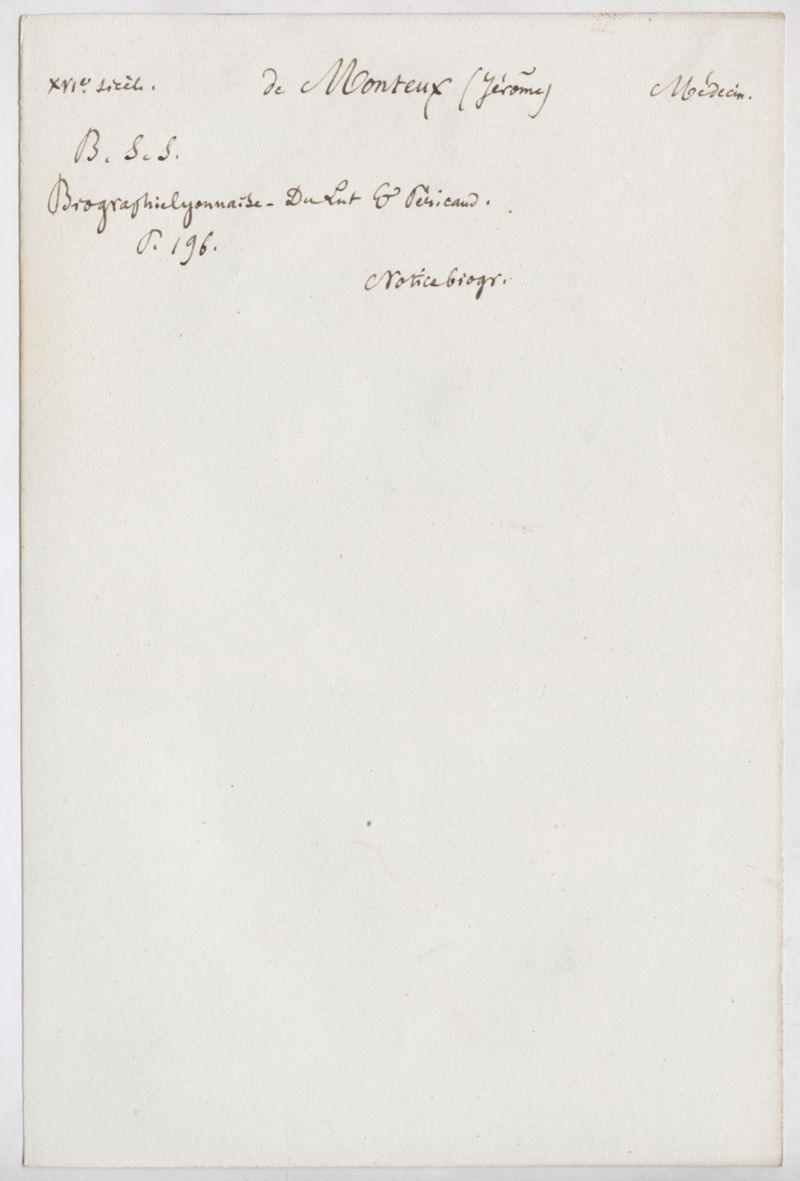 XVIe siècle. de Monteux (Jérôme) Médecin.
B. S. S.
Biographie lyonnaise - Du Lut & Péricaud.
P. 196.
Notice biogr.